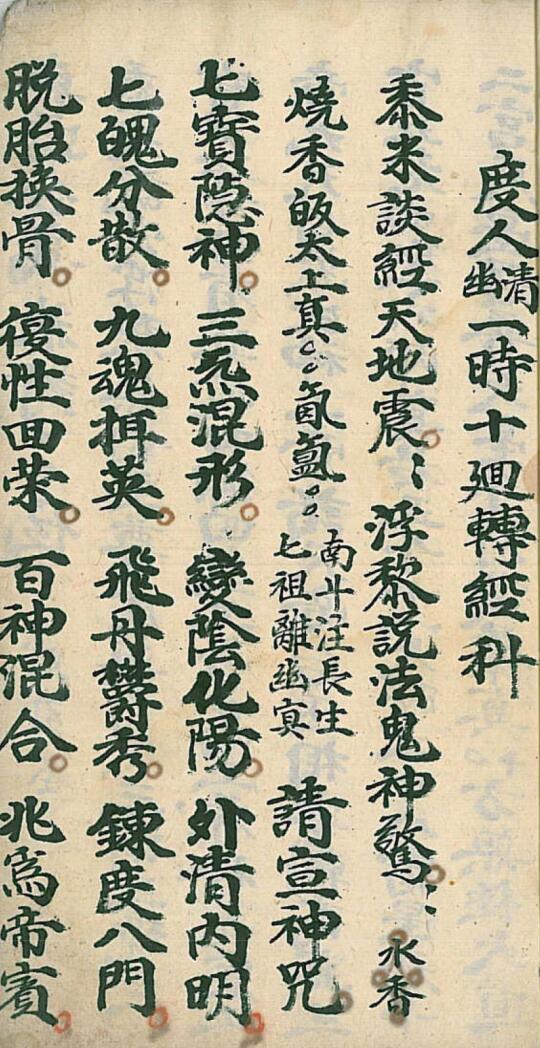 度人清幽一時十迴轉經科
黍米談經天地震〻浮黎説法鬼神驚〻永香
燒香皈太上真〻氤氳〻南斗注長生七祖離幽冥請宣神咒
七寳隐神三炁混形變陰化陽外清内明
七魄分散九魂挕英飛丹欝秀鍊度八門
脱胎换骨復性回荣百神混合兆爲帝賓